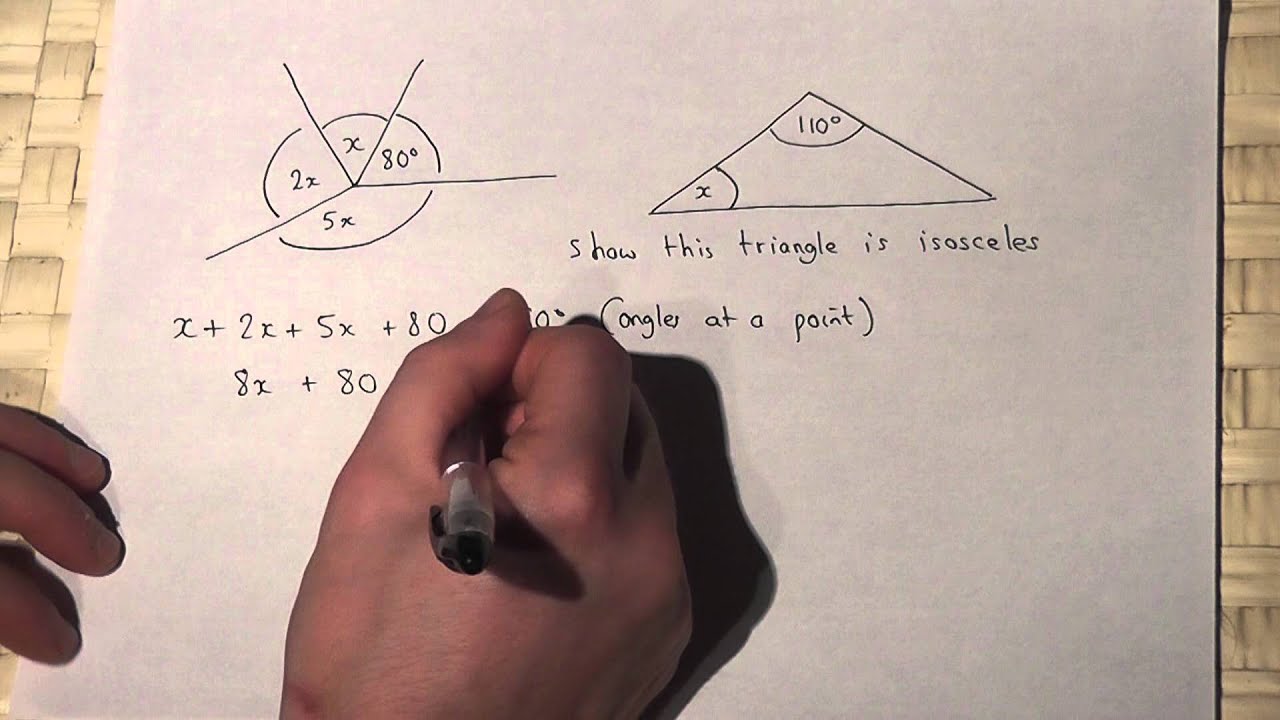 x
80°
2x
5x
110°
x
show this triangle is isosceles
x + 2x + 5x + 80 0° (angles at a point)
8x + 80